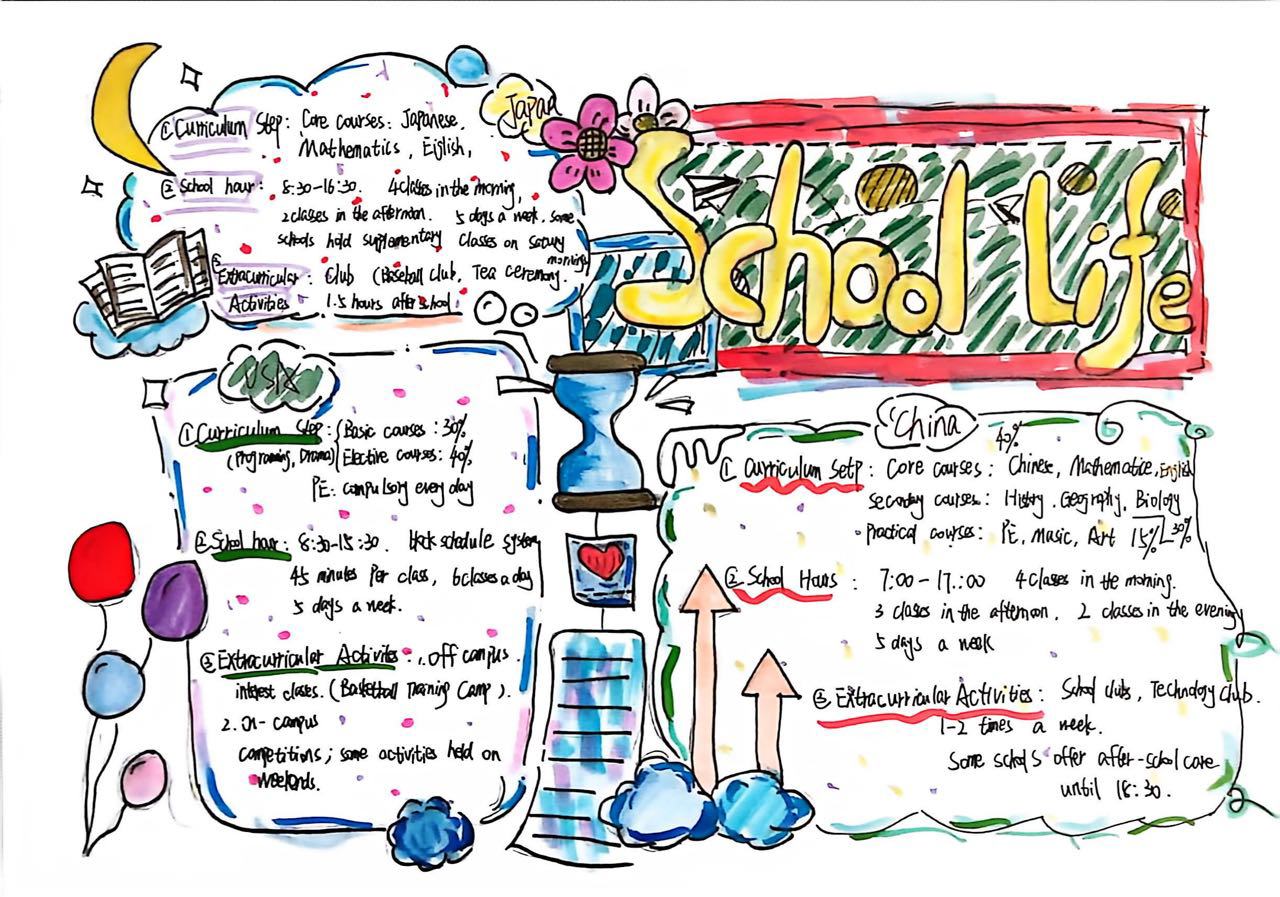 School Life
Japan
① Curriculum Step: Core courses: Japanese,
Mathematics, English,
② School hour: 8:30-16:30. 4 classes in the morning,
2 classes in the afternoon. 5 days a week. some
schools hold supplementary classes on
morning.
③
Extracurricular: Club (Baseball club, Tea ceremony.
Activities 1.5 hours after school.
USA
① Curriculum Step: Basic courses: 30%
(Programing, Drama) Elective courses: 40%
PE: compulsory every day
② School hour: 8:30-15:30. schedule system
45 minutes per class, 6 classes a day
5 days a week.
③ Extracurricular Activites: 1. off campus.
interest classes. (Basketball Training Camp).
2. On-campus
competitions; some activities held on
weekends.
China
40%
① Curriculum Setp: Core courses: Chinese, Mathematice, English
Secondary courses: History, Geography, Biology
Practical courses: PE, Music, Art 15% 30%
② School Hours: 7:00-17:00 4 classes in the morning.
3 classes in the afternoon. 2 classes in the evening
5 days a week
③ Extracurricular Activities: School clubs, Technology club.
1-2 times a week.
Some schools offer after-school care
until 18:30.